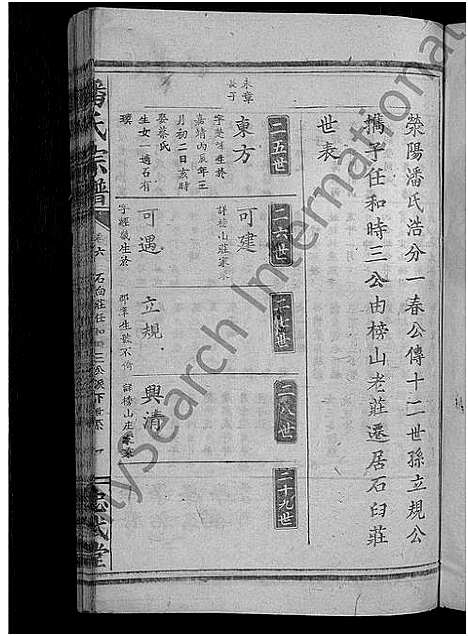 滎陽潘氏浩分一春公傳十二世孫立規公
攜子任和時三公由榜山老莊遷居石臼莊
世表
二五世
二六世
二七世
二八世
二十九世
東章
長子
東方
嘉靖丙辰年三
月初二日亥時
娶蔡氏
生女一適石有
璞
可建
詳榜山莊
可遇
立規
興清
詳榜山庄
潘氏宗譜
卷六
石臼莊任和時三公派下世系
忠武堂
MySearch International